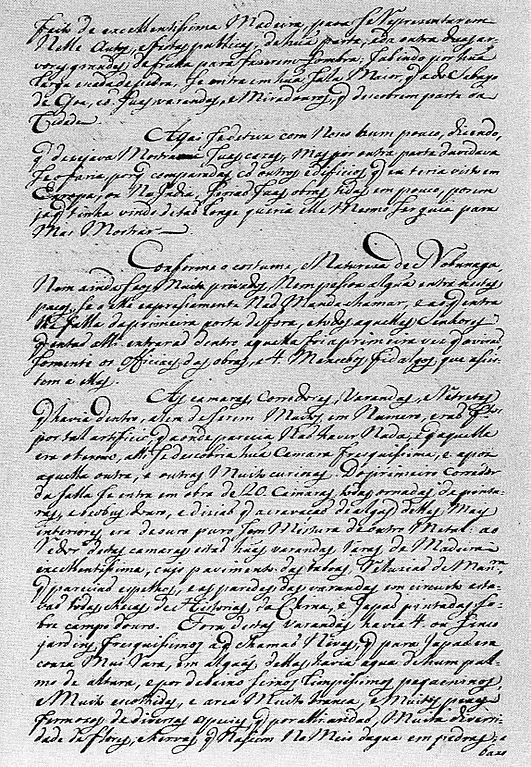 feito de excellentissima Madeira, para se representarem
Nelle Autos, e festas publicas, de hũa parte, e da outra duas ar-
vores grandes de fruta para fazerem sombra; Subindo por hũa
larga escada de pedra, se entra em hũa salla Maior, q̃ a do Sabayo
de Goa, cõ suas varandas, e Miradouros, q̃ descobrem parte da
Cidade
Aqui se deteve com Nosco hum pouco, dizendo,
q̃ desejava Mostrarme suas cazas, Mas por outra parte duvidava
se o faria, porq̃ comparadas cõ outros edificios q̃ eu teria visto em
Europa, ou Na India, seraõ suas obras tidas em pouco, porem
ja q̃ tinha vindo de taõ longe queria elle Mesmo ser guia para
Mas Mostrar
Conforme o costume, e Natureza de Nobunaga,
Nem ainda seos Muito privados, Nem pessoa algũa entra nestes
paços, se o elle expressamente Naõ Manda chamar, e aos q̃ entraõ
lhe falla da primeira porta de fora, e todos aquelles Senhores
q̃ entaõ alli entraraõ dentro aquella foi a primeira vez q̃ os viraõ
somente os officiaes das obras, e 4. Mancebos fidalgos que assis-
tem a elles.
As camaras, Corredores, Varandas, e Retretes
q̃ havia dentro, alem de serem Muitos, em Numero, eraõ
por tal artificio q̃ aonde parecia Naõ haver Nada, e q̃ aquella
era o termo, alli se descobria hũa Camara fresquissima, e apos
aquella outra, e outras Muito curiosas. Do primeiro Corredor
da salla se entra em obra de 20. Camaras, todas ornadas de pintu-
ras, e beobus d'ouro, e diziaõ q̃ a cravaçaõ de algũas dellas Mais
interiores era de ouro puro, sem Mistura de outro Metal. ao
redor destas camaras estaõ hũas varandas rasas de Madeira
excellentissima, cujo pavimento das taboas,
q̃ pareciaõ espelhos, e as paredes das varandas em circuito esta-
vaõ todas cheias de Historias, da China, e Japaõ pintadas so-
bre campo d'ouro. Fora destas Varandas, havia 4. ou sinco
jardins, fresquissimos aq̃ chamaõ Nivas, q̃ para Japaõ era
couza Mui rara, em algũs, delles, havia agua de hum pal-
mo de altura, e por debaixo seixos limpissimos pequeninos,
e Muito escolhidos, e area Muito branca, e Muitos peixes
fermosos de diversas especies q̃ por alli andaõ, Muita diversi-
dade de flores, e hervas q̃ Nascem No Meio dagua em pedras, e